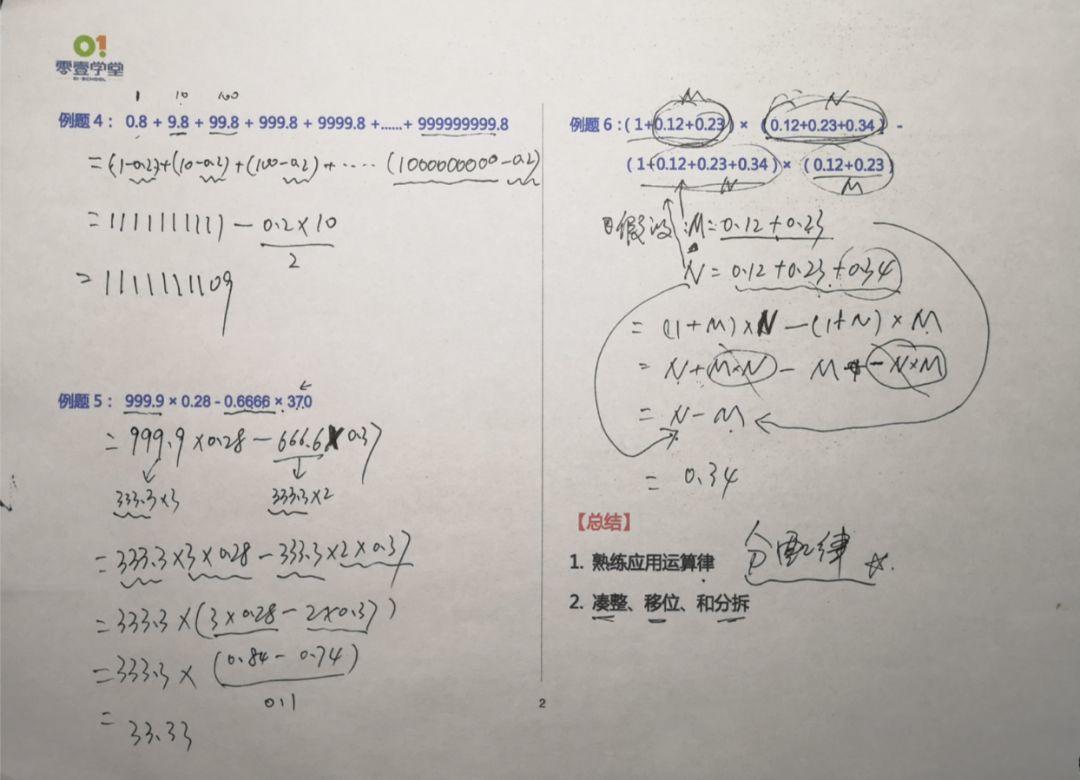 01
零壹学堂
01 SCHOOL
1 10 100
例题 4: 0.8 + 9.8 + 99.8 + 999.8 + 9999.8 +......+ 999999999.8
= (1-0.2)+(10-0.2)+(100-0.2)+.....(1000000000-0.2)
= 1111111111 - 0.2×10
2
= 1111111109
例题 5: 999.9 × 0.28 - 0.6666 × 370
= 999.9 × 0.28 - 666.6 × 0.37
333.3×3 333.3×2
= 333.3×3×0.28 - 333.3×2×0.37
= 333.3×(3×0.28 - 2×0.37)
= 333.3 × (0.84 - 0.74)
0.1
= 33.33
M N
例题 6: ( 1+0.12+0.23) × (0.12+0.23+0.34) -
(1+0.12+0.23+0.34 ) × ( 0.12+0.23 )
N M
假设: M=0.12+0.23
N=0.12+0.23+0.34
= (1+M)×N-(1+N)×M
= N+M×N - M - N×M
= N-M
= 0.34
【总结】
1. 熟练应用运算律 分配律
2. 凑整、移位、和分拆
2